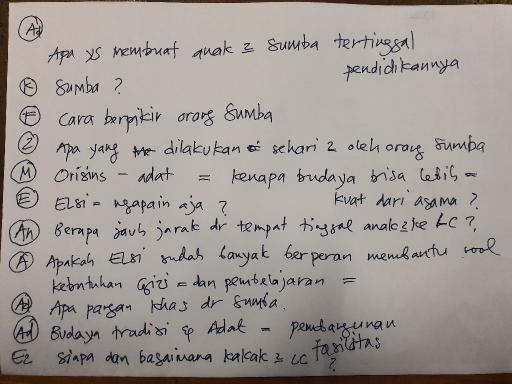 Ad
Apa yg membuat anak 2 Sumba tertinggal
pendidikannya
K Sumba ?
F Cara berpikir orang Sumba
2 Apa yang dilakukan sehari 2 oleh orang Sumba
M Origins - adat = kenapa budaya bisa lebih =
kuat dari agama ?
E ELSI = ngapain aja ?
An Berapa jauh jarak dr tempat tinggal anak2 ke LC ?
A Apakah ELSI sudah banyak berperan membantu
kebutuhan Gizi = dan pembelajaran =
Ad Apa pangan khas dr Sumba.
Ad Budaya tradisi Adat = pembangunan
fasilitas
Ez Siapa dan bagaimana kakak 2 LC ?